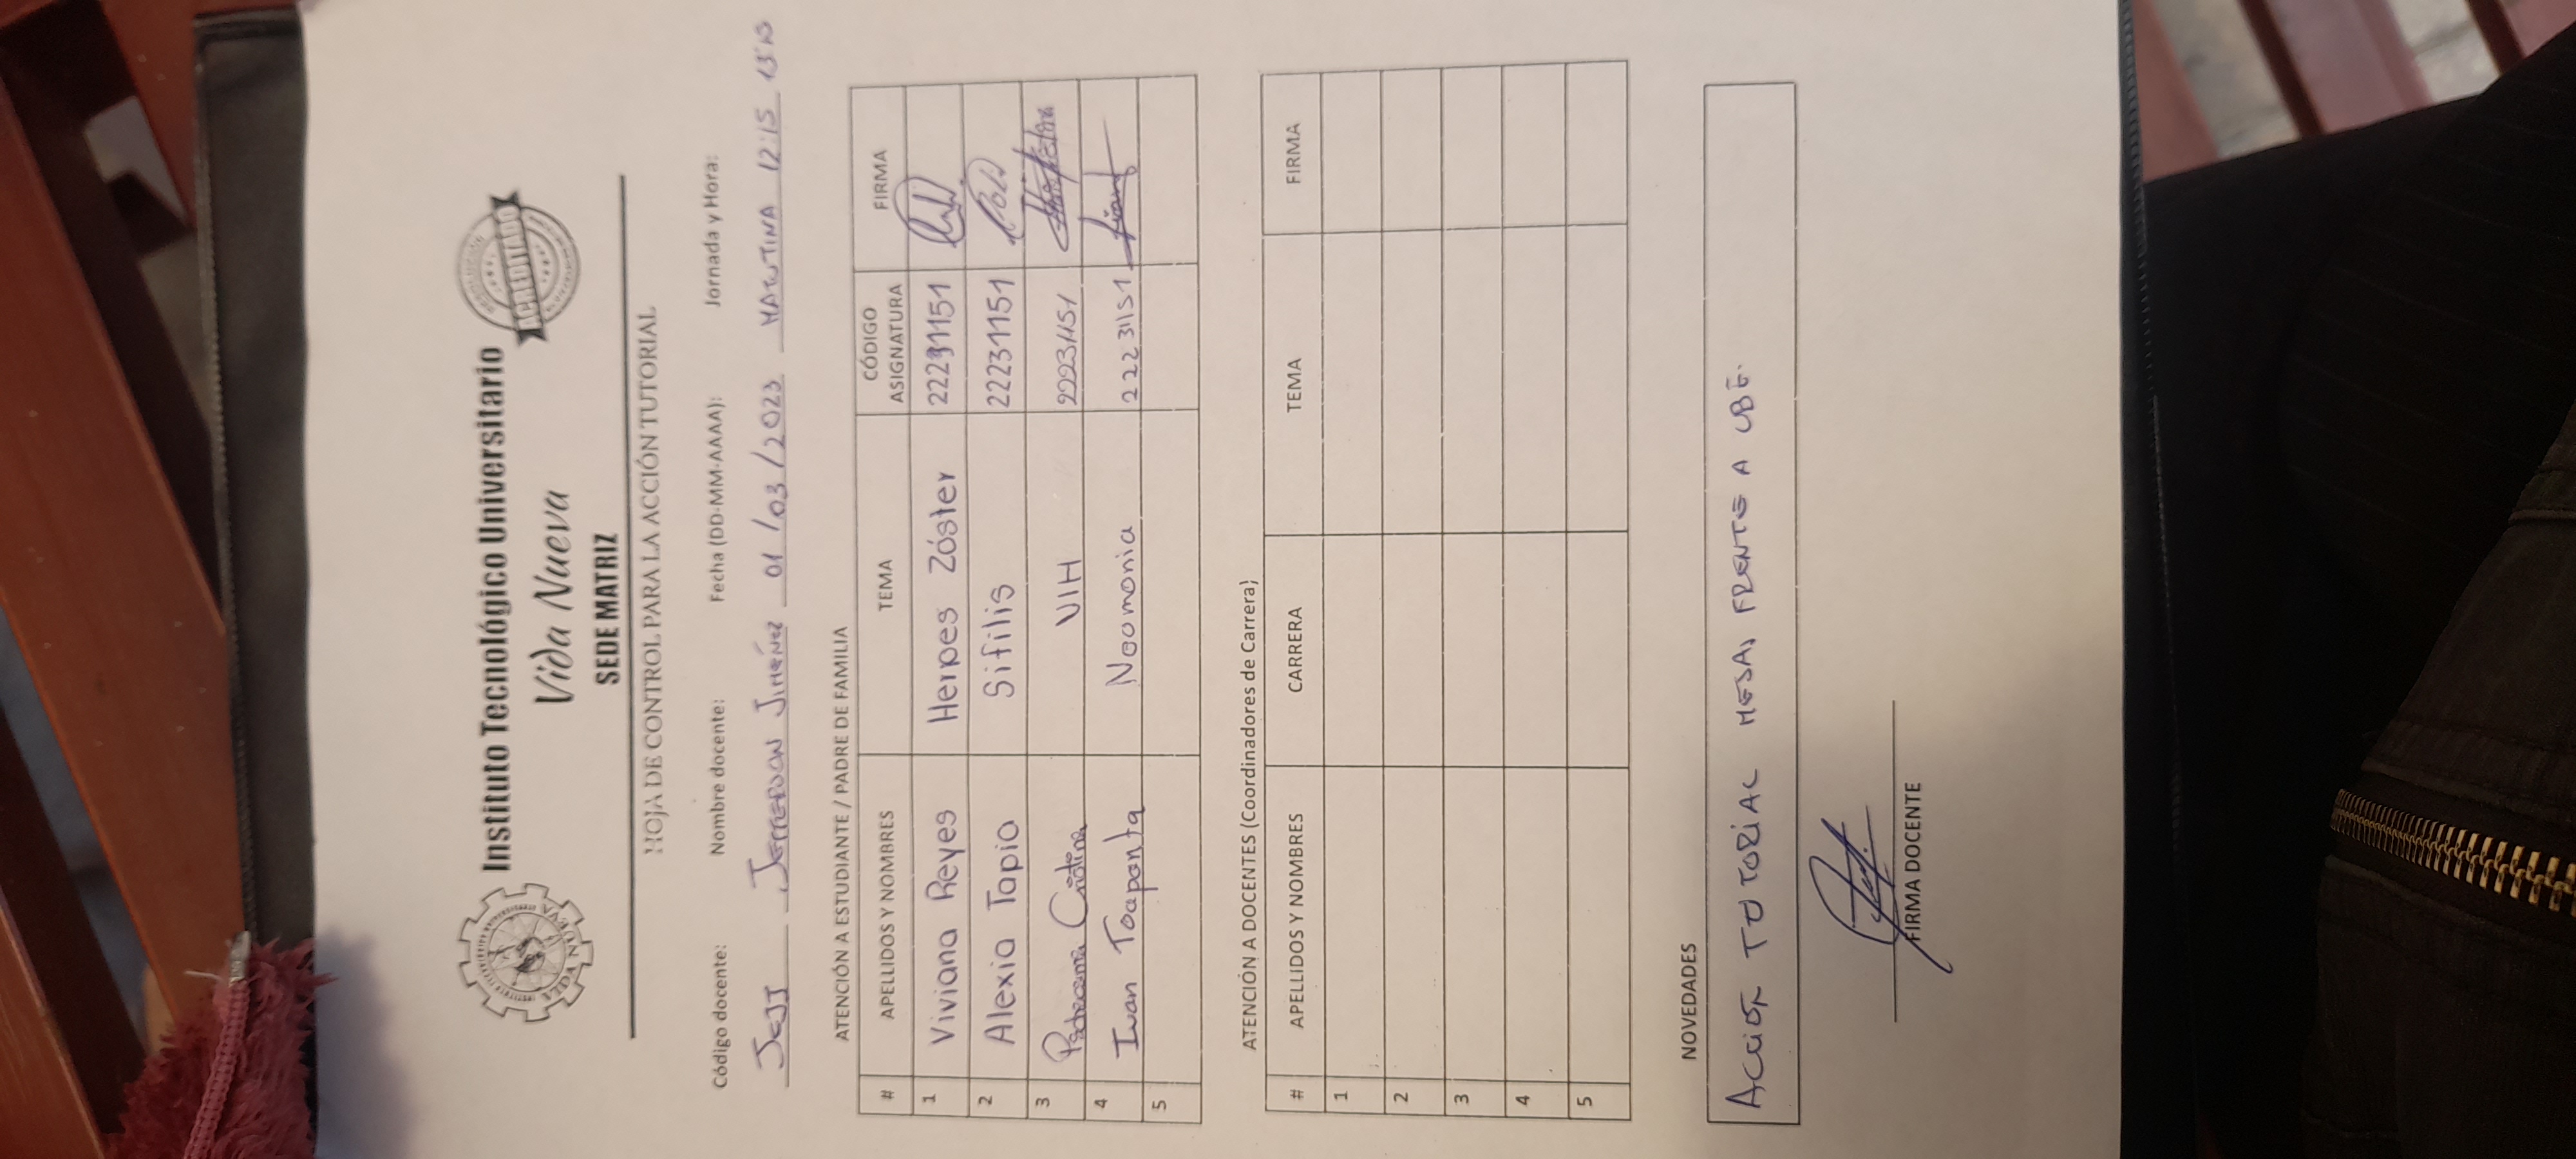 Instituto Tecnológico Universitario
Vida Nueva
SEDE MATRIZ
VIDA NUEVA
ACREDITADO
HOJA DE CONTROL PARA LA ACCIÓN TUTORIAL
Código docente: Nombre docente: Fecha (DD-MM-AAAA): Jornada y Hora:
JEJI JEFFERSON JIMÉNEZ 01/03/2023 MATUTINA 12:15 13:15
ATENCIÓN A ESTUDIANTE / PADRE DE FAMILIA
# APELLIDOS Y NOMBRES TEMA CÓDIGO ASIGNATURA FIRMA
1 Viviana Reyes Herpes Zóster 22231151
2 Alexia Tapia Sifilis 22231151
3 Pachacama Cristina VIH 22231151
4 Ivan Toapanta Noomonia 22231151
5
ATENCIÓN A DOCENTES (Coordinadores de Carrera)
# APELLIDOS Y NOMBRES CARRERA TEMA FIRMA
1
2
3
4
5
NOVEDADES
ACCIÓN TUTORIAL MESA, FRENTE A UBE.
FIRMA DOCENTE